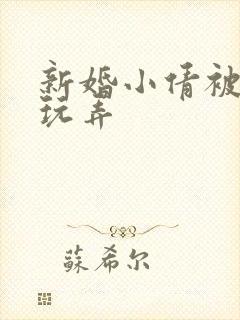 新婚小倩被
玩弄
蘇希尔